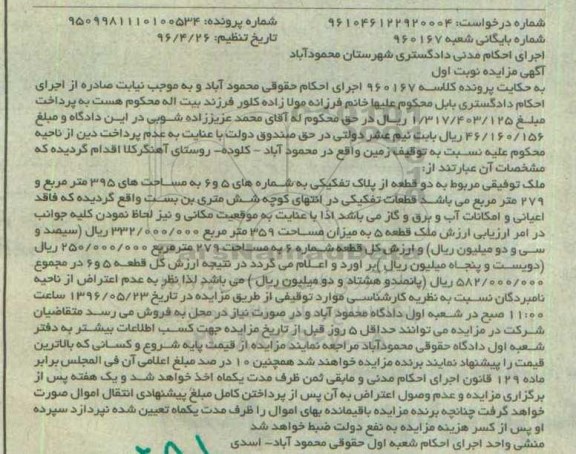 شماره درخواست: ۹۶۱۰۴۶۱۲۲۹۲۰۰۰۴ شماره پرونده: ۹۵۰۹۹۸۱۱۱۰۱۰۰۵۳۴
شماره بایگانی شعبه ۹۶۰۱۶۷ تاریخ تنظیم: ۹۶/۴/۲۶
اجرای احکام مدنی دادگستری شهرستان محمودآباد
آگهی مزایده نوبت اول
به حکایت پرونده کلاسه ۹۶۰۱۶۷ اجرای احکام حقوقی محمود آباد و به موجب نیابت صادره از اجرای
احکام دادگستری بابل محکوم علیها خانم فرزانه مولا زاده کلور فرزند بیت اله محکوم هست به پرداخت
مبلغ ۱/۳۱۷/۴۰۳/۱۲۵ ریال در حق محکوم له آقای محمد عزیززاده شوبی در این دادگاه و مبلغ
۴۶/۱۶۰/۱۵۶ ریال بابت نیم عشر دولتی در حق صندوق دولت با عنایت به عدم پرداخت دین از ناحیه
محکوم علیه نسبت به توقیف زمین واقع در محمود آباد - کلوده- روستای آهنگرکلا اقدام گردیده که
مشخصات آن عبارتند از:
ملک توقیفی مربوط به دو قطعه از پلاک تفکیکی به شماره های ۵ و ۶ به مساحت های ۳۹۵ متر مربع و
۲۷۹ متر مربع می باشد قطعات تفکیکی در انتهای کوچه شش متری بن بست واقع گردیده که فاقد
اعیانی و امکانات آب و برق و گاز می باشد لذا با عنایت به موقعیت مکانی و نیز لحاظ نمودن کلیه جوانب
در امر ارزیابی ارزش ملک قطعه ۵ به میزان مساحت ۳۵۹ متر مربع ۳۳۲/۰۰۰/۰۰۰ ریال (سیصد و
سی و دو میلیون ریال) و ارزش کل قطعه شماره ۶ به مساحت ۲۷۹ مترمربع ۲۵۰/۰۰۰/۰۰۰ ریال
(دویست و پنجاه میلیون ریال) بر اورد و اعلام می گردد در نتیجه ارزش کل قطعه ۵ و ۶ در مجموع
۵۸۲/۰۰۰/۰۰۰ ریال (پانصدو هشتاد و دو میلیون ریال ) می باشد لذا نظر به عدم اعتراض از ناحیه
نامبردگان نسبت به نظریه کارشناسی موارد توقیفی از طریق مزایده در تاریخ ۱۳۹۶/۰۵/۲۳ ساعت
۱۱:۰۰ صبح در شعبه اول دادگاه محمود آباد و در صورت نیاز در محل به فروش می رسد متقاضیان
شرکت در مزایده می توانند حداقل ۵ روز قبل از تاریخ مزایده جهت کسب اطلاعات بیشتر به دفتر
شعبه اول دادگاه حقوقی محمودآباد مراجعه نمایند مزایده از قیمت پایه شروع و کسانی که بالاترین
قیمت را پیشنهاد نمایند برنده مزایده خواهند شد همچنین ۱۰ در صد مبلغ اعلامی آن فی المجلس برابر
ماده ۱۲۹ قانون اجرای احکام مدنی و مابقی ثمن ظرف مدت یکماه اخذ خواهد شد و یک هفته پس از
برگزاری مزایده و عدم وصول اعتراض به آن پس از پرداختن کامل مبلغ پیشنهادی انتقال اموال صورت
خواهد گرفت چنانچه برنده مزایده باقیمانده بهای اموال را ظرف مدت یکماه تعیین شده نپردازد سپرده
او پس از کسر هزینه مزایده به نفع دولت ضبط خواهد شد
منشی واحد اجرای احکام شعبه اول حقوقی محمود آباد- اسدی